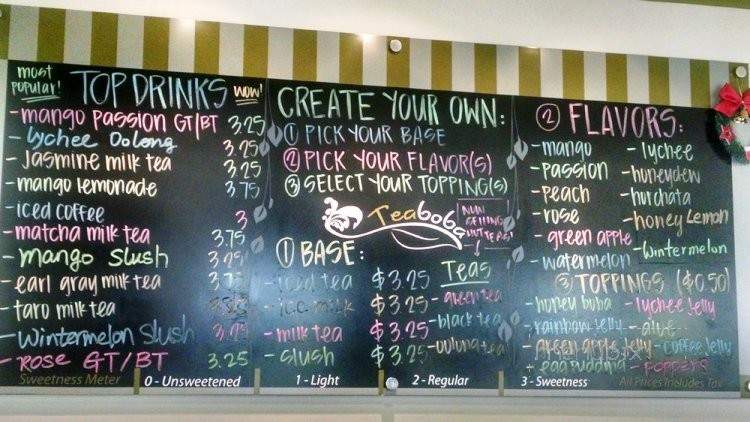 most popular! TOP DRINKS wow!
- mango passion GT/BT 3.25
- lychee Oolong 3.25
- Jasmine milk tea 3.25
- mango lemonade 3.75
- iced coffee 3
- matcha milk tea 3.75
- mango slush 3.25
- earl gray milk tea
- taro milk tea
- Wintermelon Slush 3.75
- ROSE GT/BT 3.25
CREATE YOUR OWN:
① PICK YOUR BASE
② PICK YOUR FLAVOR(S)
③ SELECT YOUR TOPPING(S)
Teaboba
NOW SELLING HOT TEAS!
① BASE:
- iced tea $3.25
- ice milk $3.25
- milk tea $3.25
- slush $3.25
TEAS
- green tea
- black tea
- oolong tea
② FLAVORS:
- mango
- passion
- peach
- rose
- green apple
- watermelon
- lychee
- honeydew
- horchata
- honey lemon
- Wintermelon
③ TOPPINGS ($0.50)
- honey boba
- rainbow jelly
- green apple jelly
- egg pudding
- lychee jelly
- aloe
- coffee jelly
- POPPERS
Sweetness Meter 0 - Unsweetened 1 - Light 2 - Regular 3 - Sweetness All Prices Includes Tax